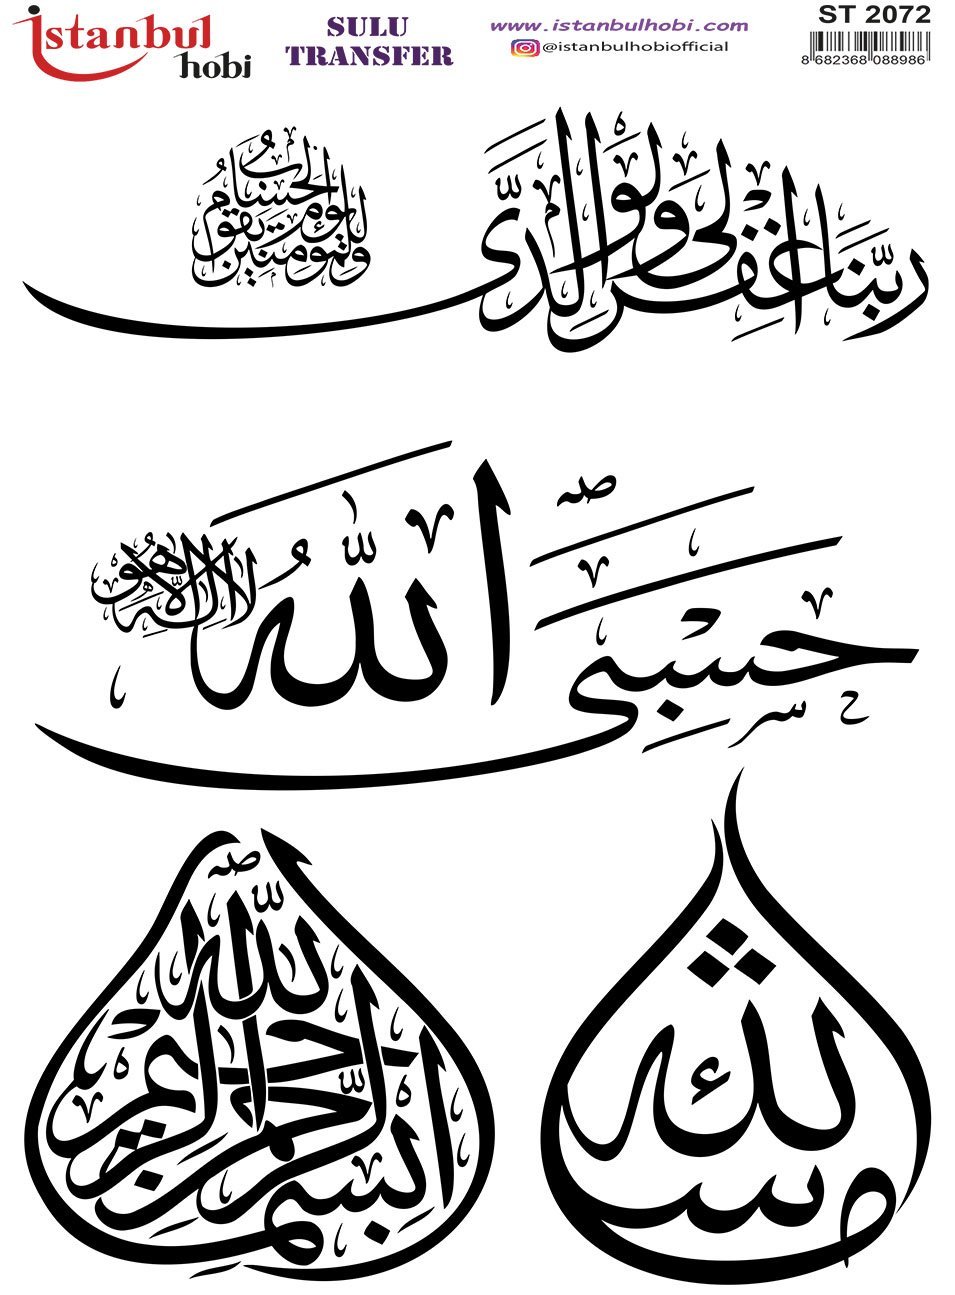 istanbul hobi
SULU TRANSFER
www.istanbulhobi.com
@istanbulhobiofficial
ST 2072
8 682368 088986
ربنا اغفرلی ولوالدی
وللمومنین یوم یقوم الحساب
حسبی الله
لا اله الا هو
بسم الله الرحمن الرحیم